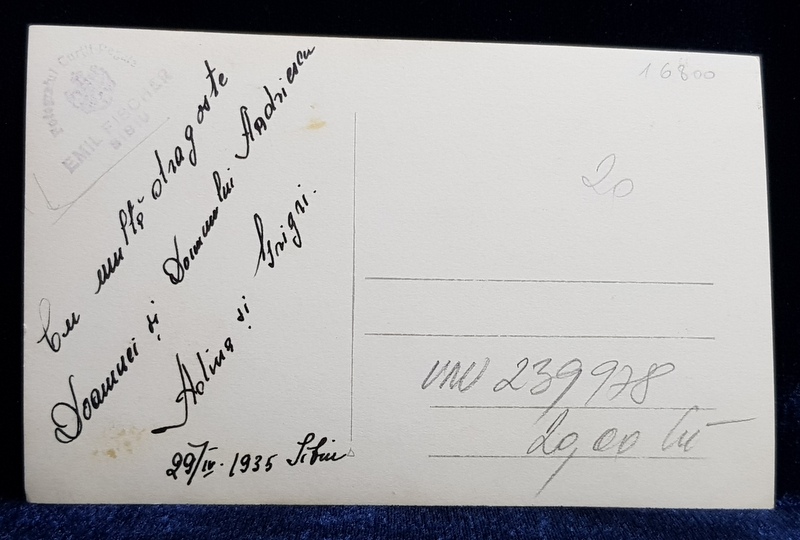 Fotograful Curții Regale
EMIL FISCHER
SIBIU
Cu multă dragoste
Doamnei și Domnului Andriescu
Adina și Grigri.
29/IV. 1935 Sibiu
16800
20
239978
20,00 lei